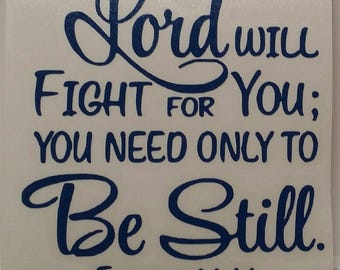 Lord WILL
FIGHT FOR YOU;
YOU NEED ONLY TO
Be Still.